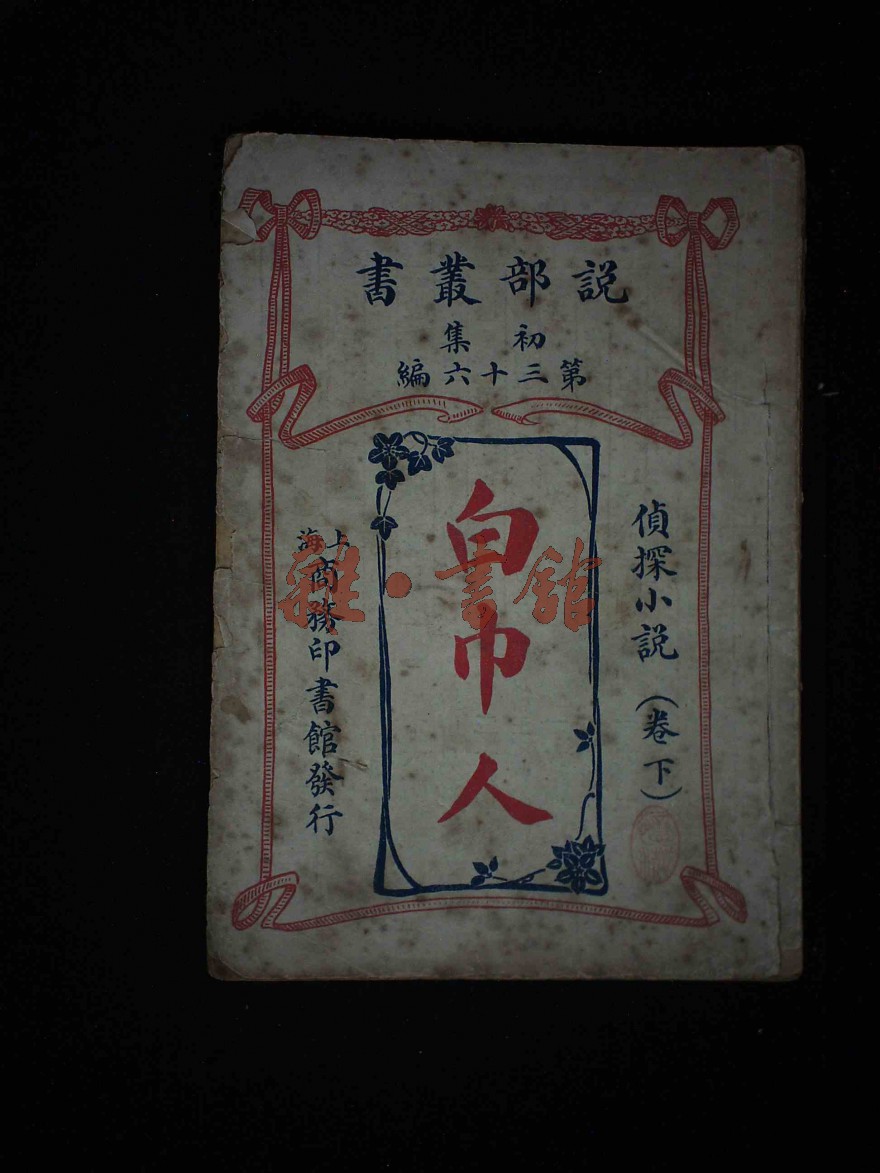 説部叢書
初集
第三十六編
偵探小説（卷下）
白巾人
上海商務印書館發行
雜·書館